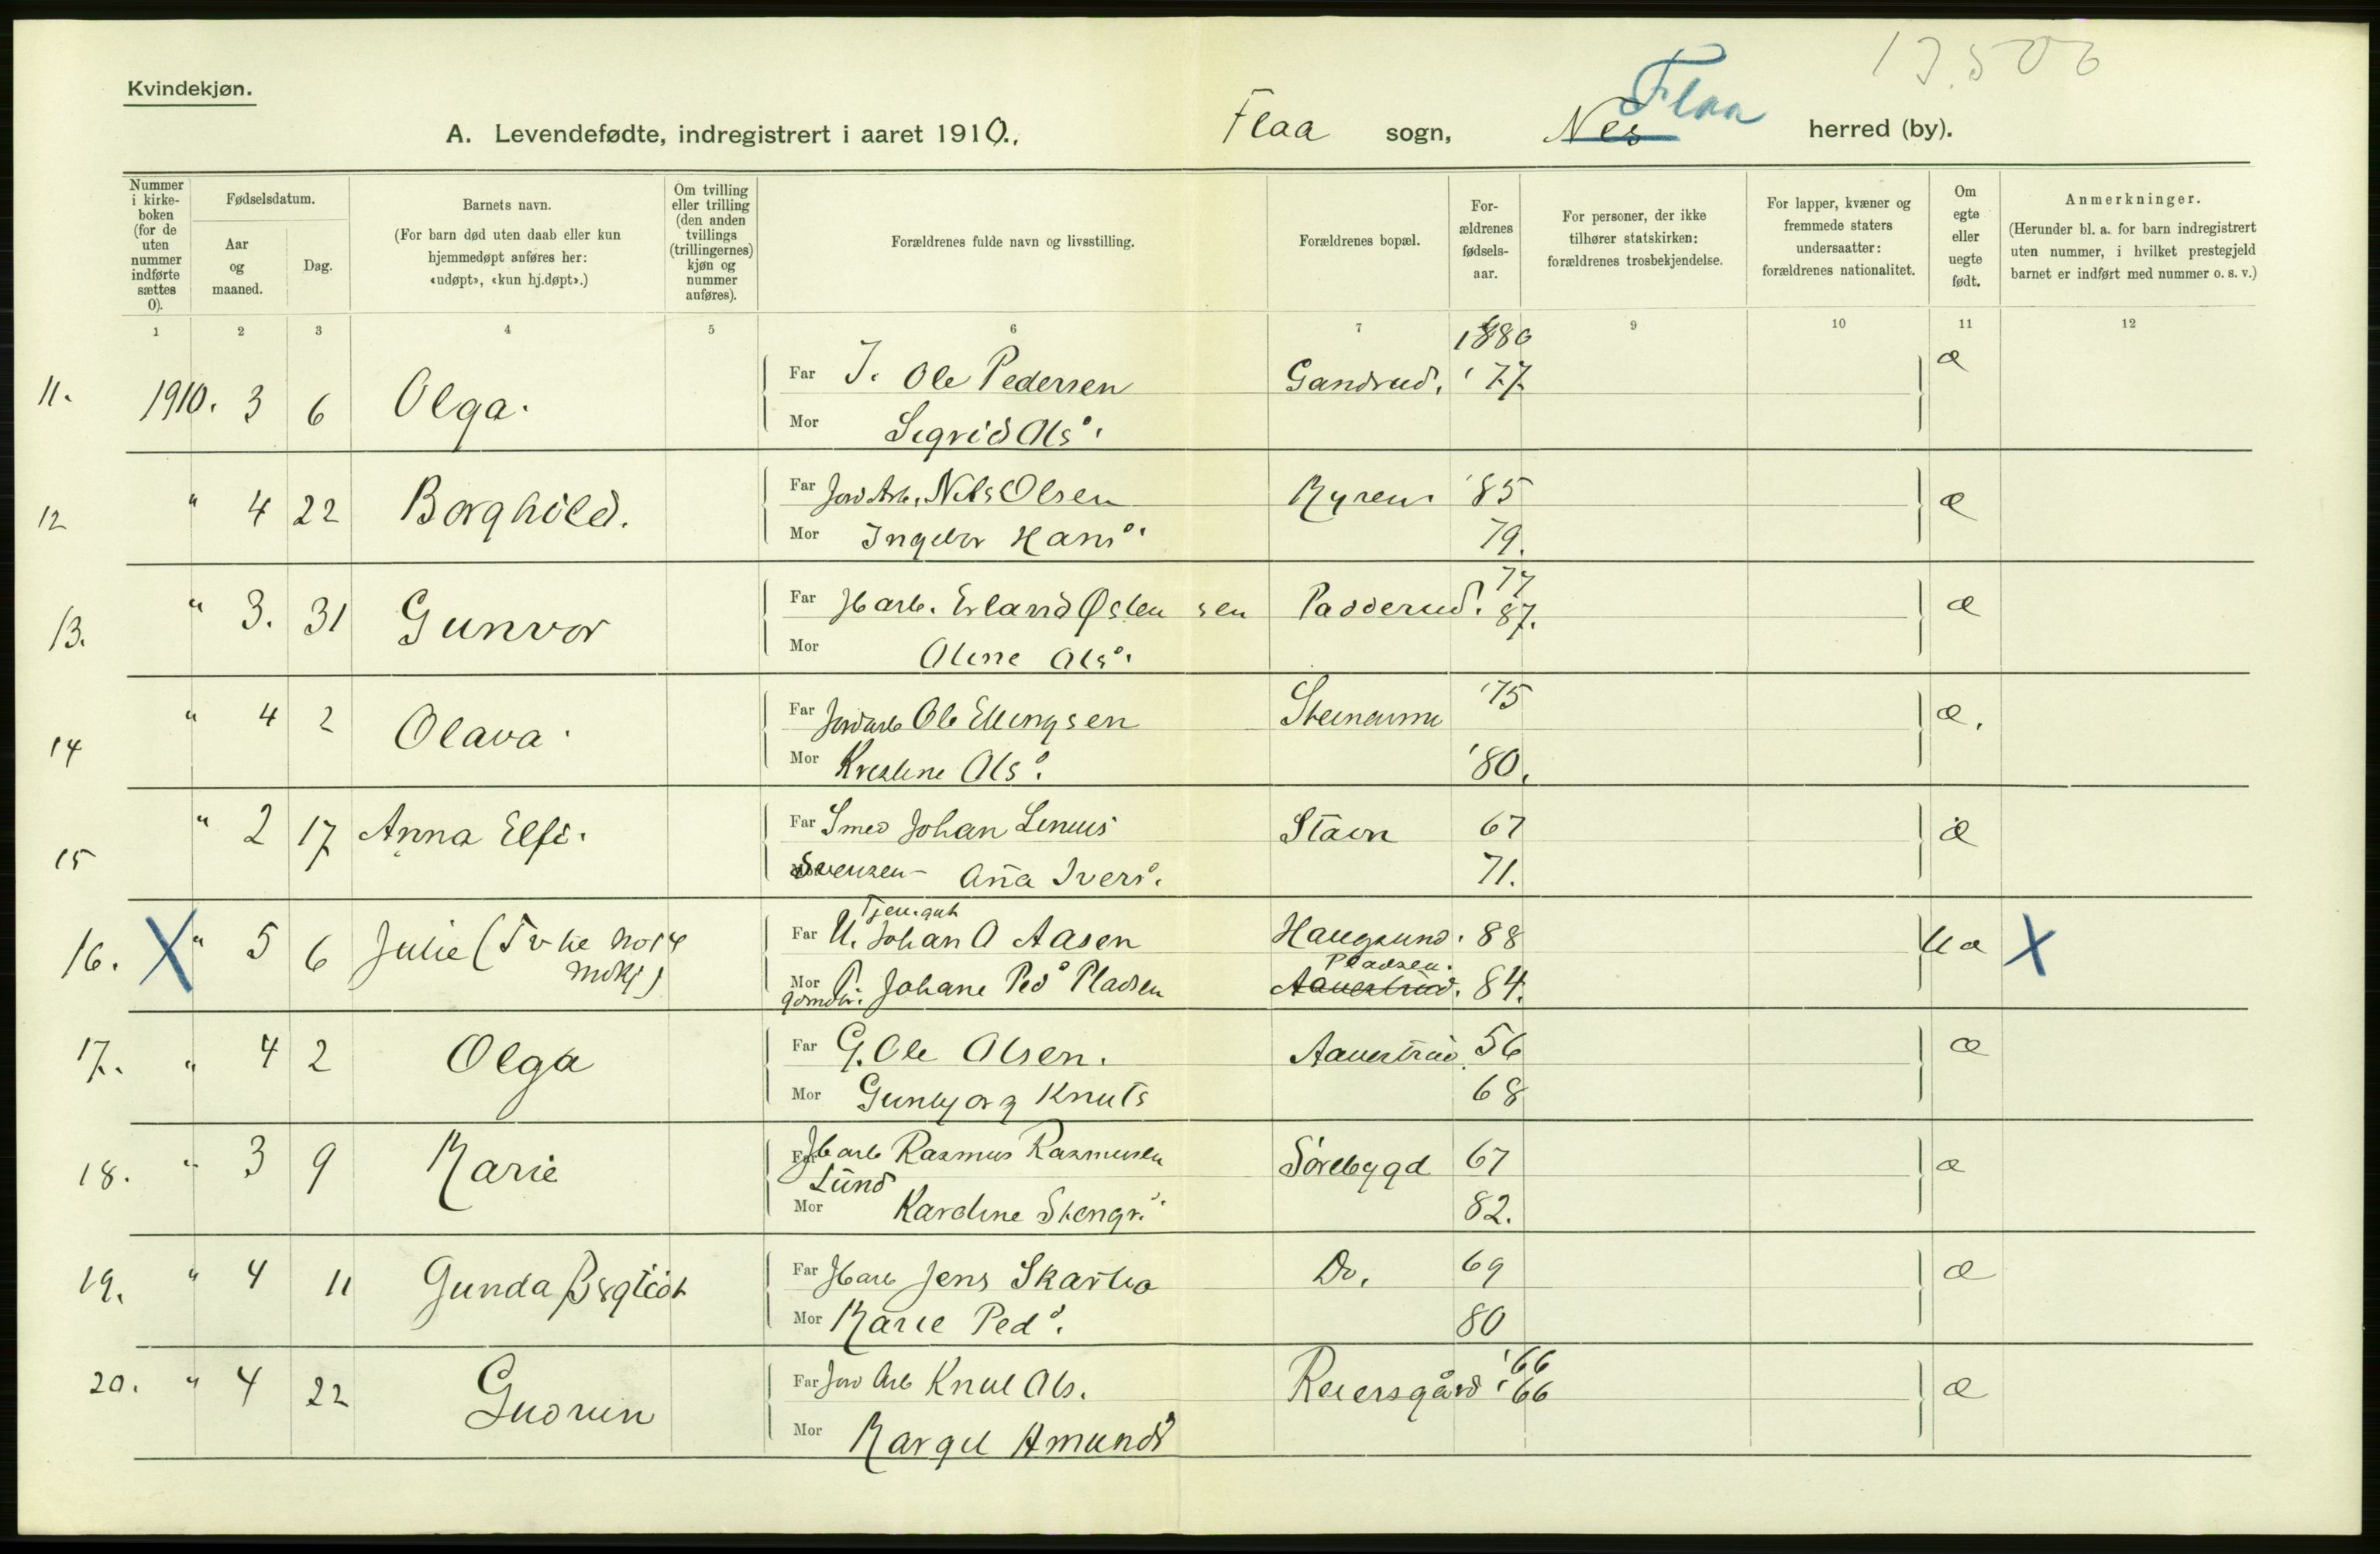 Kvindekjøn.
13506
A. Levendefødte, indregistrert i aaret 1910., Flaa sogn, Nes Flaa herred (by).
Nummer i kirkeboken (for de uten nummer indførte sættes 0).
Fødselsdatum.
Aar og maaned.
Dag.
Barnets navn.
(For barn død uten daab eller kun hjemmedøpt anføres her: «udøpt», «kun hj.døpt».)
Om tvilling eller trilling (den anden tvillings (trillingernes) kjøn og nummer anføres).
Forældrenes fulde navn og livsstilling.
Forældrenes bopæl.
Forældrenes fødselsaar.
For personer, der ikke tilhører statskirken: forældrenes trosbekjendelse.
For lapper, kvæner og fremmede staters undersaatter: forældrenes nationalitet.
Om egte eller uegte født.
Anmerkninger.
(Herunder bl. a. for barn indregistrert uten nummer, i hvilket prestegjeld barnet er indført med nummer o. s. v.)
1 2 3 4 5 6 7 9 10 11 12
11. 1910. 3 6 Olga. Far J. Ole Pedersen Gandrud. 1880 '77 æ
Mor Sigrid Olsd.
12 " 4 22 Borghild. Far Jord Arb. Nils Olsen Myren. '85 æ
Mor Ingebor Hansd. 79.
13. " 3. 31 Gunvor Far Jb arb. Erland Østensen Padderud. 77 87. æ
Mor Oline Olsd.
14 " 4 2 Olava. Far Jordarb Ole Ellingsen '75 æ.
Mor Kristine Olsd. '80.
15 " 2 17 Anna Elfi. Far Smed Johan Linius Stavn 67 æ
Svensen - Mor Anna Iversd. 71.
16. X " 5 6 Julie Far U. Tjen.gut Johan O Aasen Haugsund. 88 Uæ X
Mor P. Johane Pedd Pladsen Pladsen. Aavestrud. 84.
17. " 4 2 Olga Far G. Ole Olsen. Aavestrud 56 æ
Mor Gunbjorg Knuts 68
18. " 3 9 Marie Far Jb arb Rasmus Rasmusen Sørebygd 67 æ
Lund Mor Karoline Stengr. 82.
19. " 4 11 Gunda Bergliot Far Jb arb Jens Do. 69 æ
Mor Marie Pedd. 80
20. " 4 22 Gudrun Far Jord Arb Knut Ols. Reiersgård '66 '66 æ
Mor Margit Amundd